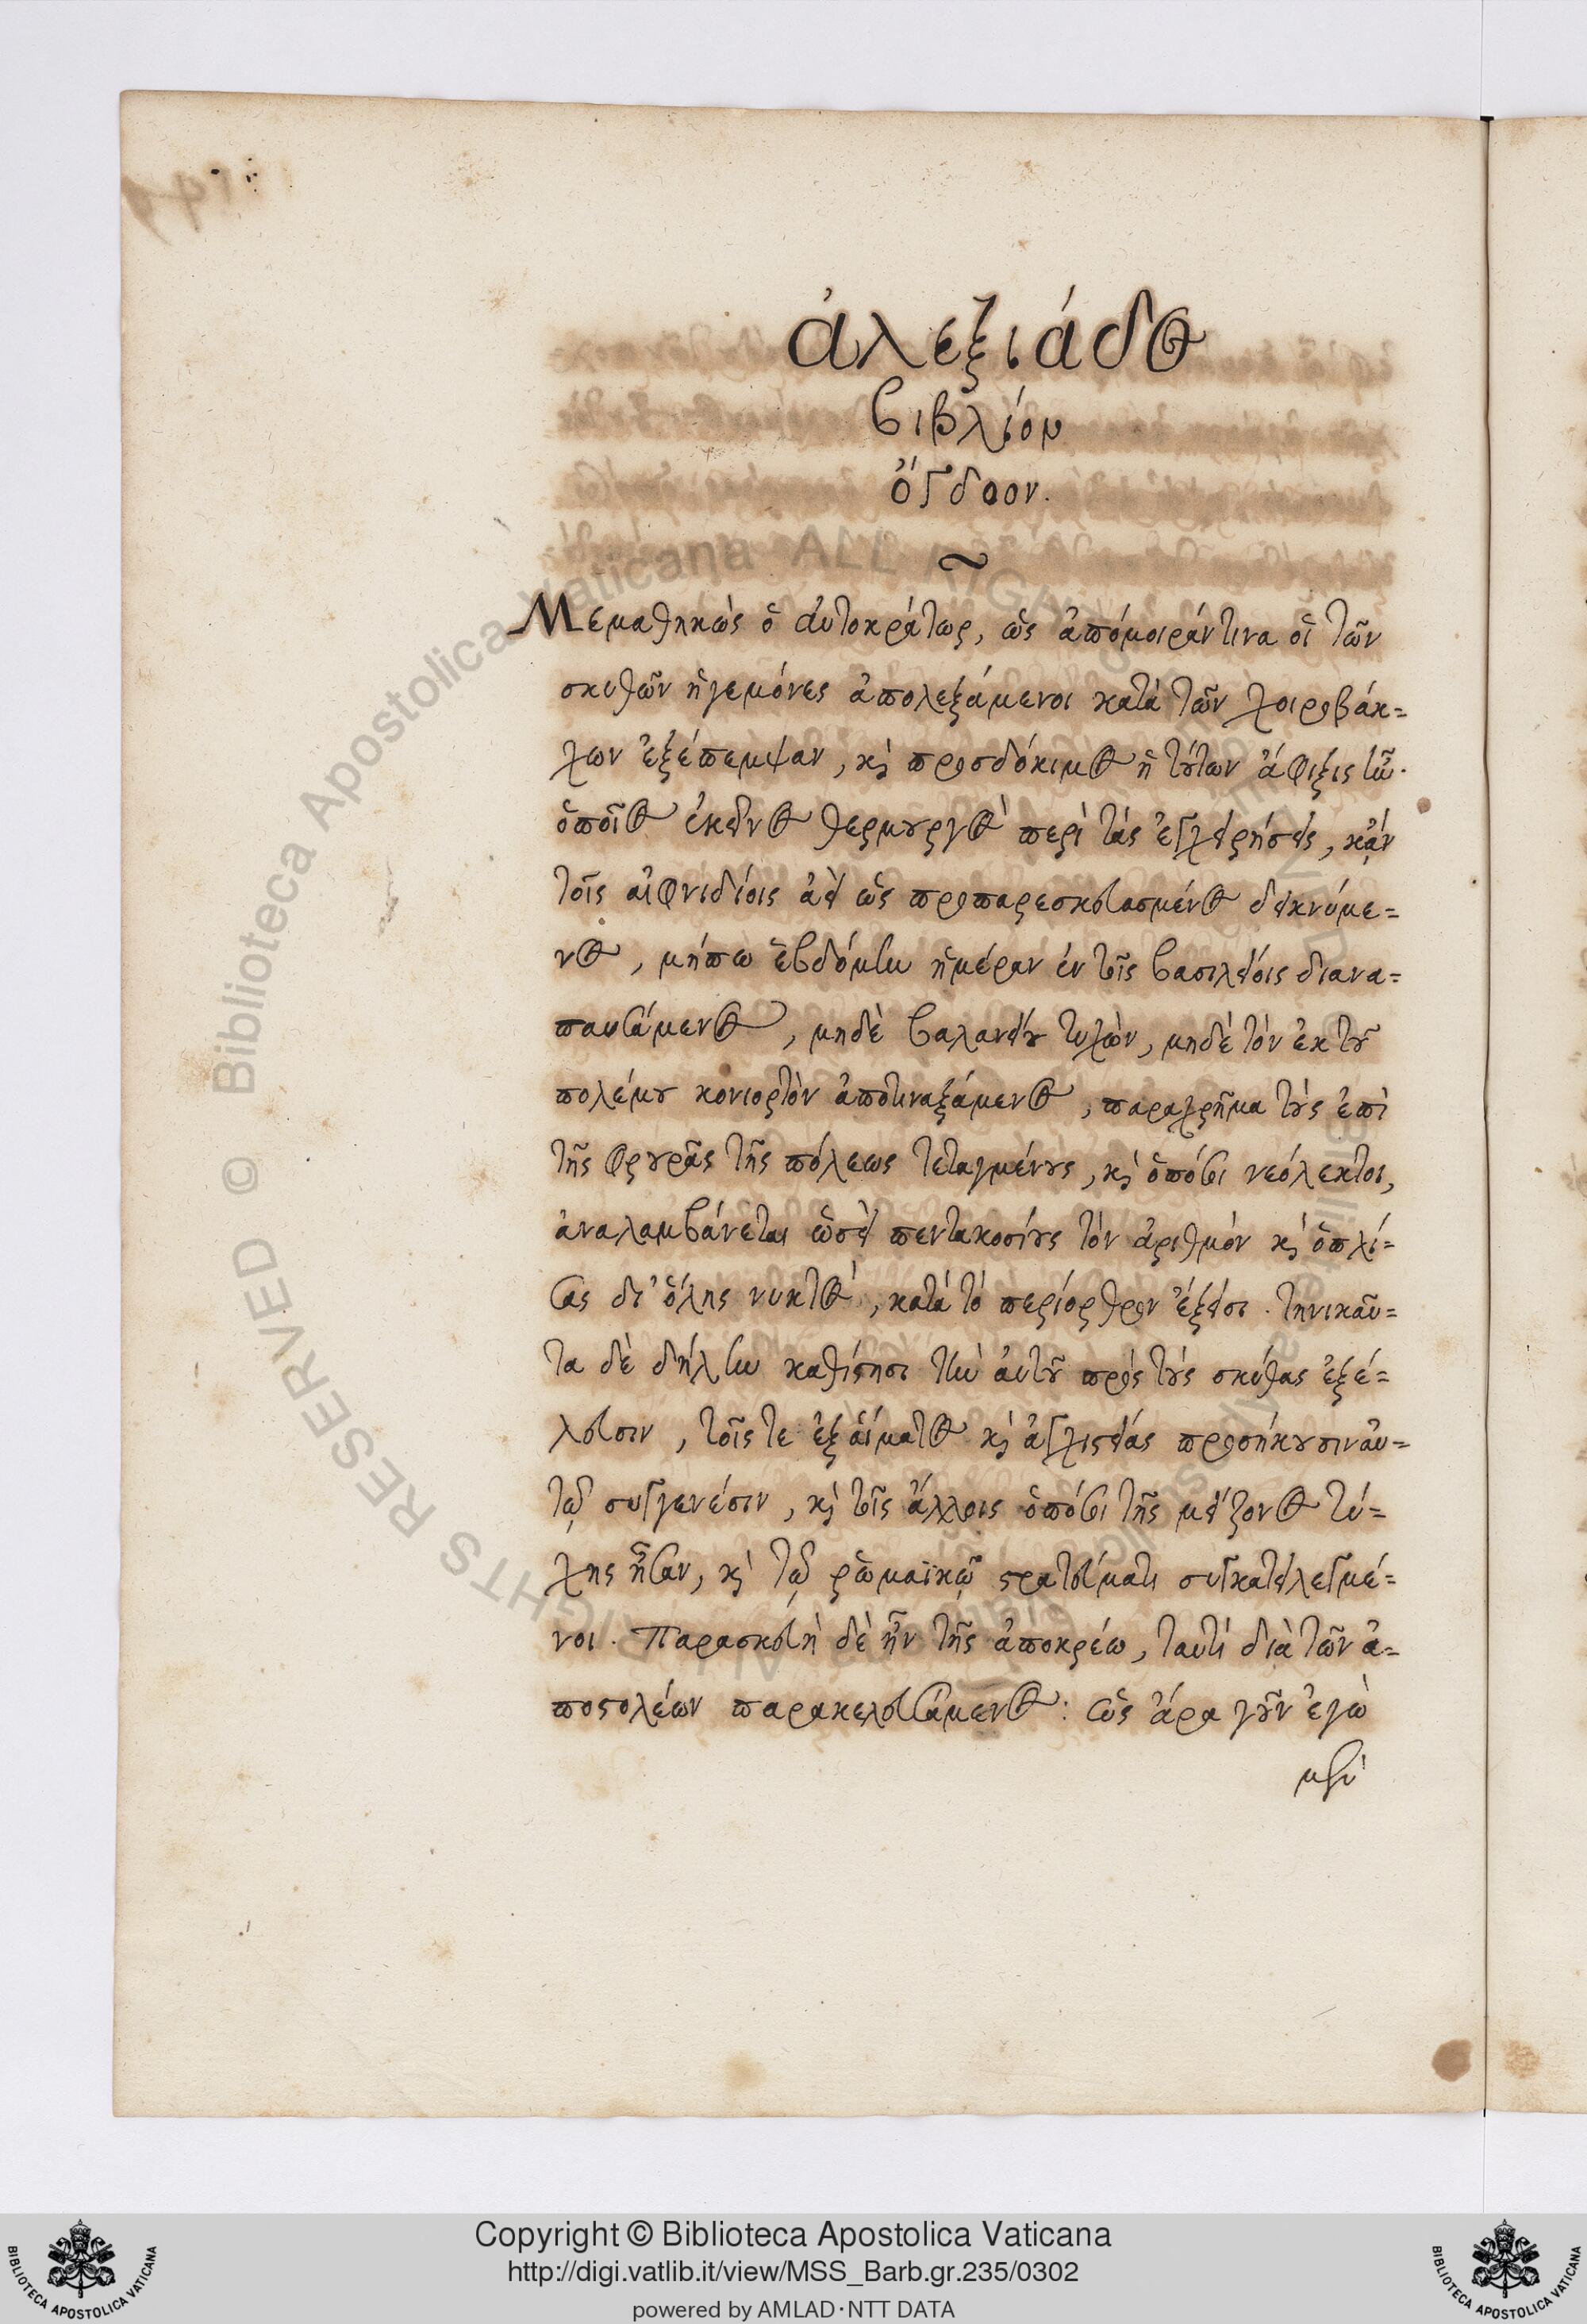 ἀλεξιάδος
βιβλίον
ὄγδοον.
Μεμαθηκὼς ὁ αὐτοκράτωρ, ὡς ἀπόμοιράν τινα οἱ τῶν
σκυθῶν ἡγεμόνες ἀπολεξάμενοι κατὰ τῶν χοιροβάκ=
χων ἐξέπεμψαν, κὶ προσδόκιμος ἡ τούτων ἄφιξις ἦν.
ὁποῖος ἐκεῖνος θερμουργὸς περὶ τὰς ἐγχειρήσεις, κἀν
τοῖς αἰφνιδίοις ἀεὶ ὡς προπαρεσκευασμένος δεικνύμε=
νος, μήπω ἑβδόμην ἡμέραν ἐν τοῖς βασιλείοις διανα=
παυσάμενος, μηδὲ βαλανείου τυχὼν, μηδὲ τὸν ἐκ τοῦ
πολέμου κονιορτὸν ἀποτιναξάμενος, παραχρῆμα τοὺς ἐπὶ
τῆς φρουρᾶς τῆς πόλεως τεταγμένους, κὶ ὁπόσοι νεόλεκτοι,
ἀναλαμβάνεται ὡσεὶ πεντακοσίους τὸν ἀριθμὸν κὶ ὁπλί=
σας δι' ὅλης νυκτὸς, κατὰ τὸ περίορθρον ἔξεισι. τηνικαῦ=
τα δὲ δήλην καθίστησι τὴν αὐτοῦ πρὸς τοὺς σκύθας ἐξέ=
λευσιν, τοῖς τε ἐξ αἵματος κὶ ἀγχιστείας προσήκουσιν αὐ=
τῷ συγγενέσιν, κὶ τοῖς ἄλλοις ὁπόσοι τῆς μείζονος τύ=
χης ἦσαν, κὶ τῷ ῥωμαϊκῷ στρατεύματι συγκατειλεγμέ=
νοι. Παρασκευὴ δὲ ἦν τῆς ἀποκρέω, ταυτὶ διὰ τῶν ἀ=
ποστολέων παρακελευσάμενος: ὡς ἄρα γοῦν ἐγὼ
μὲν
Copyright © Biblioteca Apostolica Vaticana
http://digi.vatlib.it/view/MSS_Barb.gr.235/0302
powered by AMLAD·NTT DATA